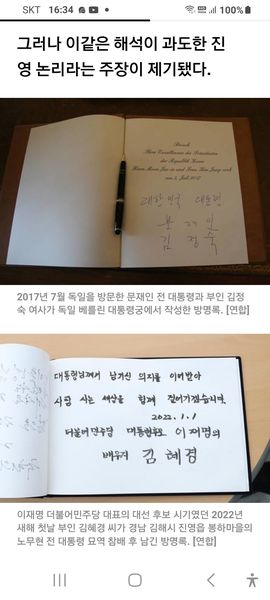 SKT 16:34 100%
그러나 이같은 해석이 과도한 진
영 논리라는 주장이 제기됐다.
Besuch
Ihrer Exzellenzen des Präsidenten
der Republik Korea
Herrn Moon Jae-in und Frau Kim Jung-sook
am 5. Juli 2017
대한민국 대통령
문 재 인
김 정 숙
2017년 7월 독일을 방문한 문재인 전 대통령과 부인 김정
숙 여사가 독일 베를린 대통령궁에서 작성한 방명록. [연합]
대통령님께서 남기신 의지를 이어받아
사람 사는 세상을 함께 열어가겠습니다.
2022. 1. 1
더불어민주당 대통령후보 이재명의
배우자 김 혜 경
이재명 더불어민주당 대표의 대선 후보 시기였던 2022년
새해 첫날 부인 김혜경 씨가 경남 김해시 진영읍 봉하마을의
노무현 전 대통령 묘역 참배 후 남긴 방명록. [연합]